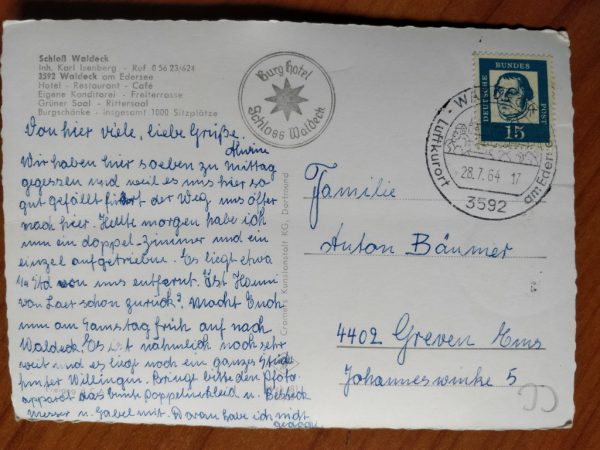 Schloß Waldeck
Inh. Karl Isenberg - Ruf 0 56 23/624
3592 Waldeck am Edersee
Hotel - Restaurant - Café
Eigene Konditorei - Freiterrasse
Grüner Saal - Rittersaal
Burgschänke - insgesamt 1000 Sitzplätze
Burg Hotel
Schloss Waldeck
DEUTSCHE BUNDESPOST
15
Luftkurort
am Edersee
28.7.64 17
3592
Von hier viele, liebe Grüße.
Wir haben hier soeben zu Mittag
gegessen und weil es uns hier so
gut gefällt führt der Weg uns öfter
nach hier. Heute morgen habe ich
nun ein doppel-Zimmer und ein
einzel aufgetrieben. Es liegt etwa
Std von uns entfernt. Ist Hanni
von Laer schon zurück? Macht Euch
nun am Samstag früh auf nach
Waldeck. Es ist nähmlich noch sehr
weit und es liegt noch ein ganzes Stück
hinter Willingen. Bringt bitte den Photo-
apparat das bunte Doppelnirkleid u. Besteck
messer u. Gabel mit. Daran habe ich nicht
gedacht
Cramers Kunstanstalt KG, Dortmund
Familie
Anton Bäumer
4402 Greven Ems
Johannes 5